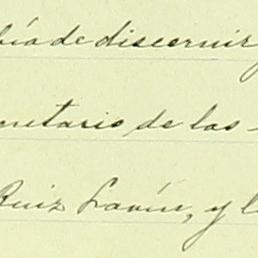 bía de discernir
cretario de los
Ruiz Lavín, y l